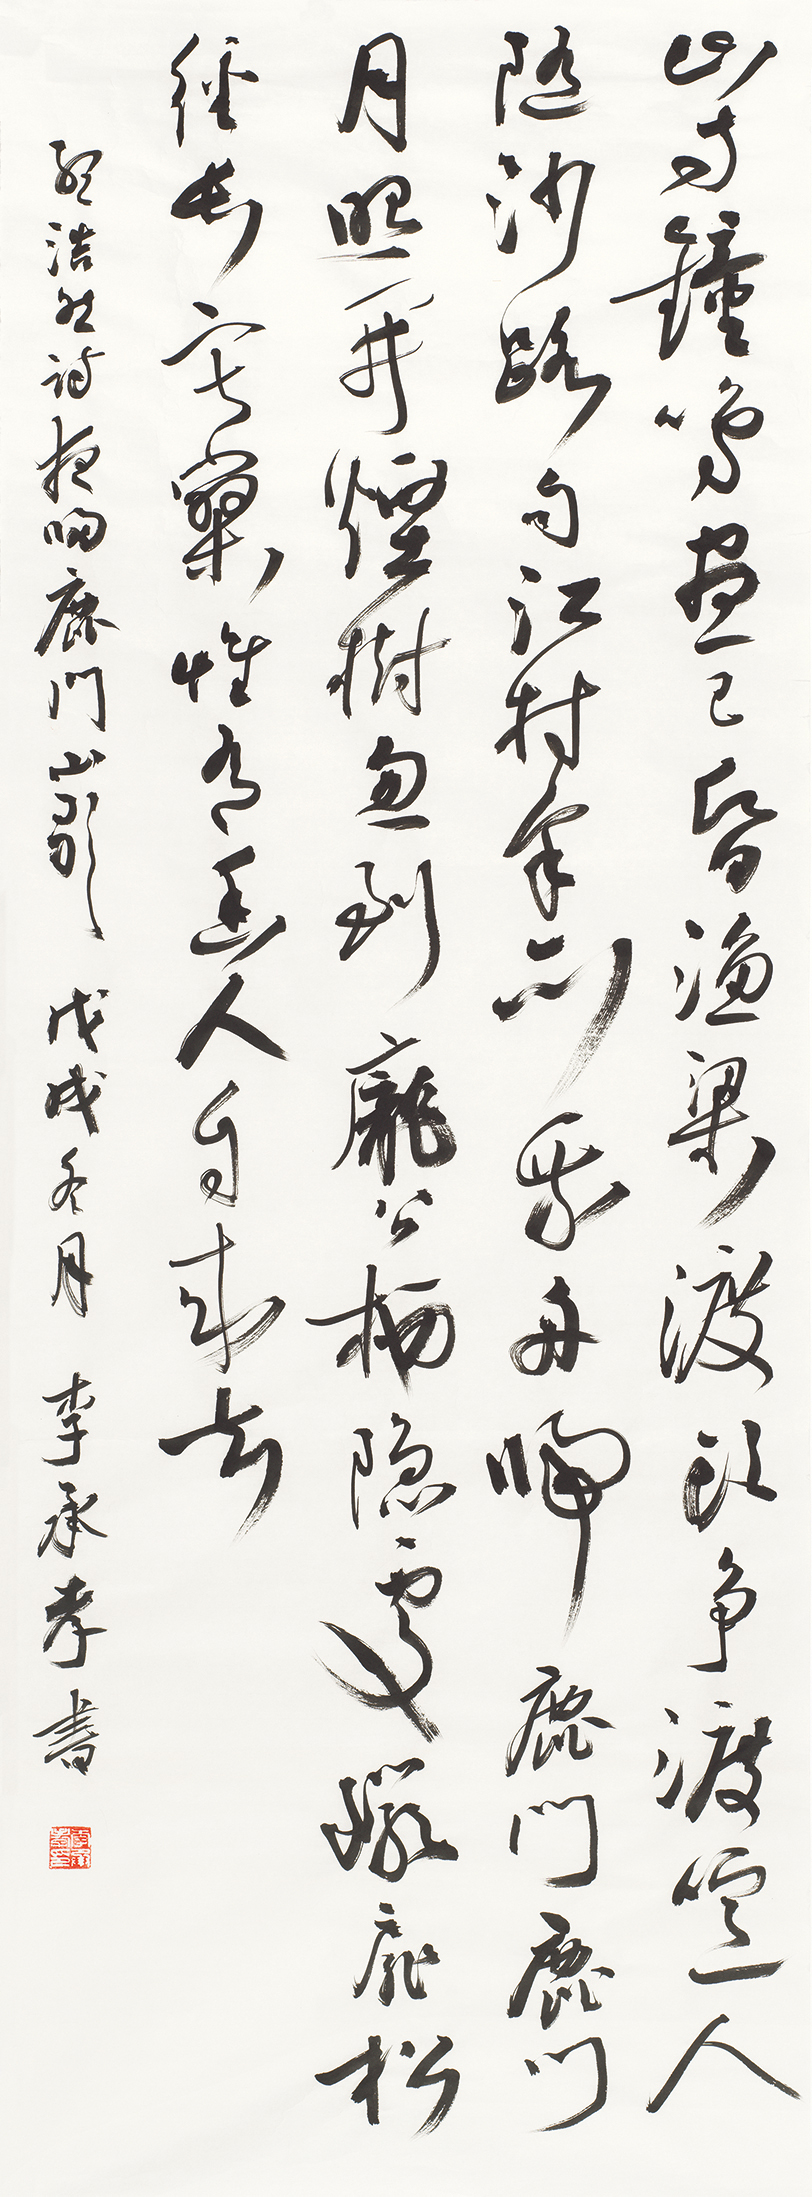 山寺鐘鳴晝已昏漁梁渡頭爭渡喧人
隨沙路向江村余亦乘舟歸鹿門鹿門
月照開煙樹忽到龐公栖隱處巖扉松
徑長寂寥惟有幽人自來去
孟浩然詩夜歸鹿門山歌 戊戌冬月 李承孝書